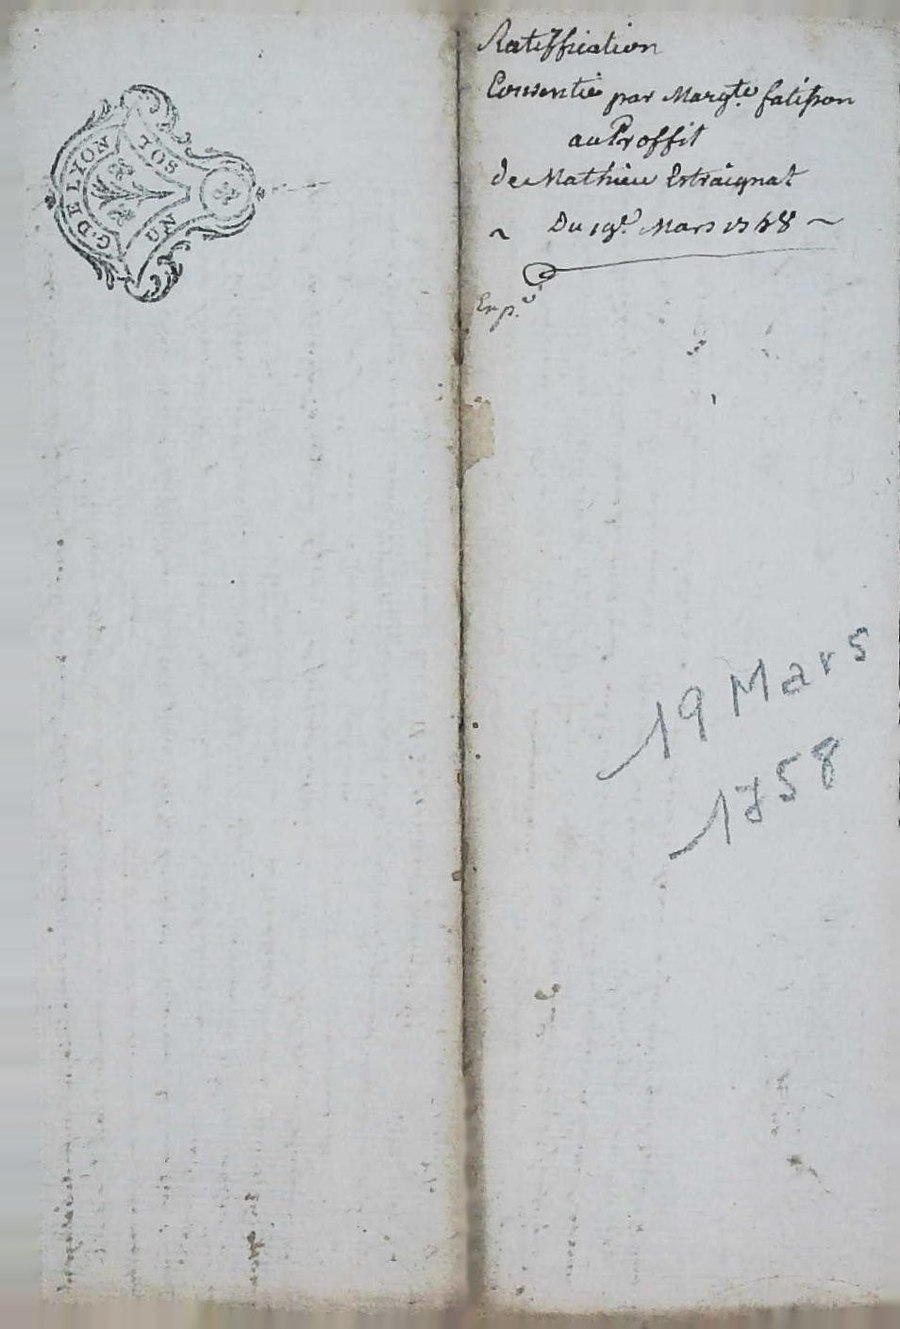 G. DE LYON
UN SOL
Ratiffication
Consentie par Margte. fatisson
au Proffit
de Mathieu Estraignat
~ Du 19e. Mars 1758 ~
Exp.
19 Mars
1758